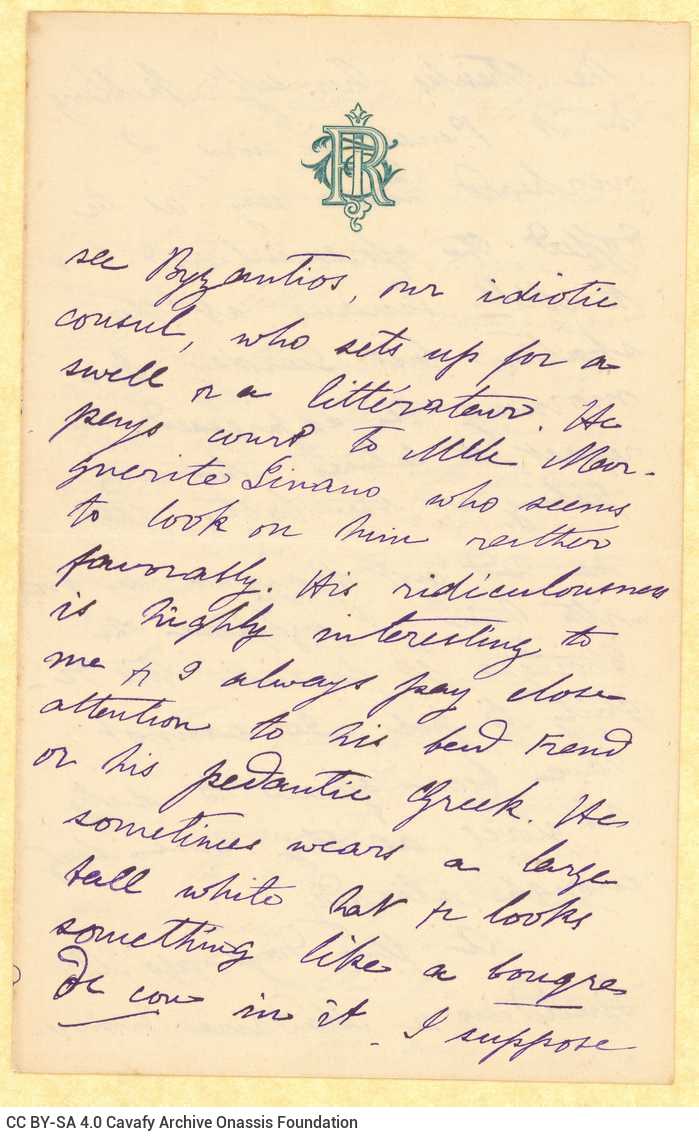 see Byzantios, our idiotic
consul, who sets up for a
swell & a littérateur. He
pays court to Mlle Mar-
guerite Sinano who seems
to look on him rather
favorably. His ridiculousness
is highly interesting to
me & I always pay close
attention to his bad French
or his pedantic Greek. He
sometimes wears a large
tall white hat & looks
something like a bougre
de con in it. I suppose
CC BY-SA 4.0 Cavafy Archive Onassis Foundation